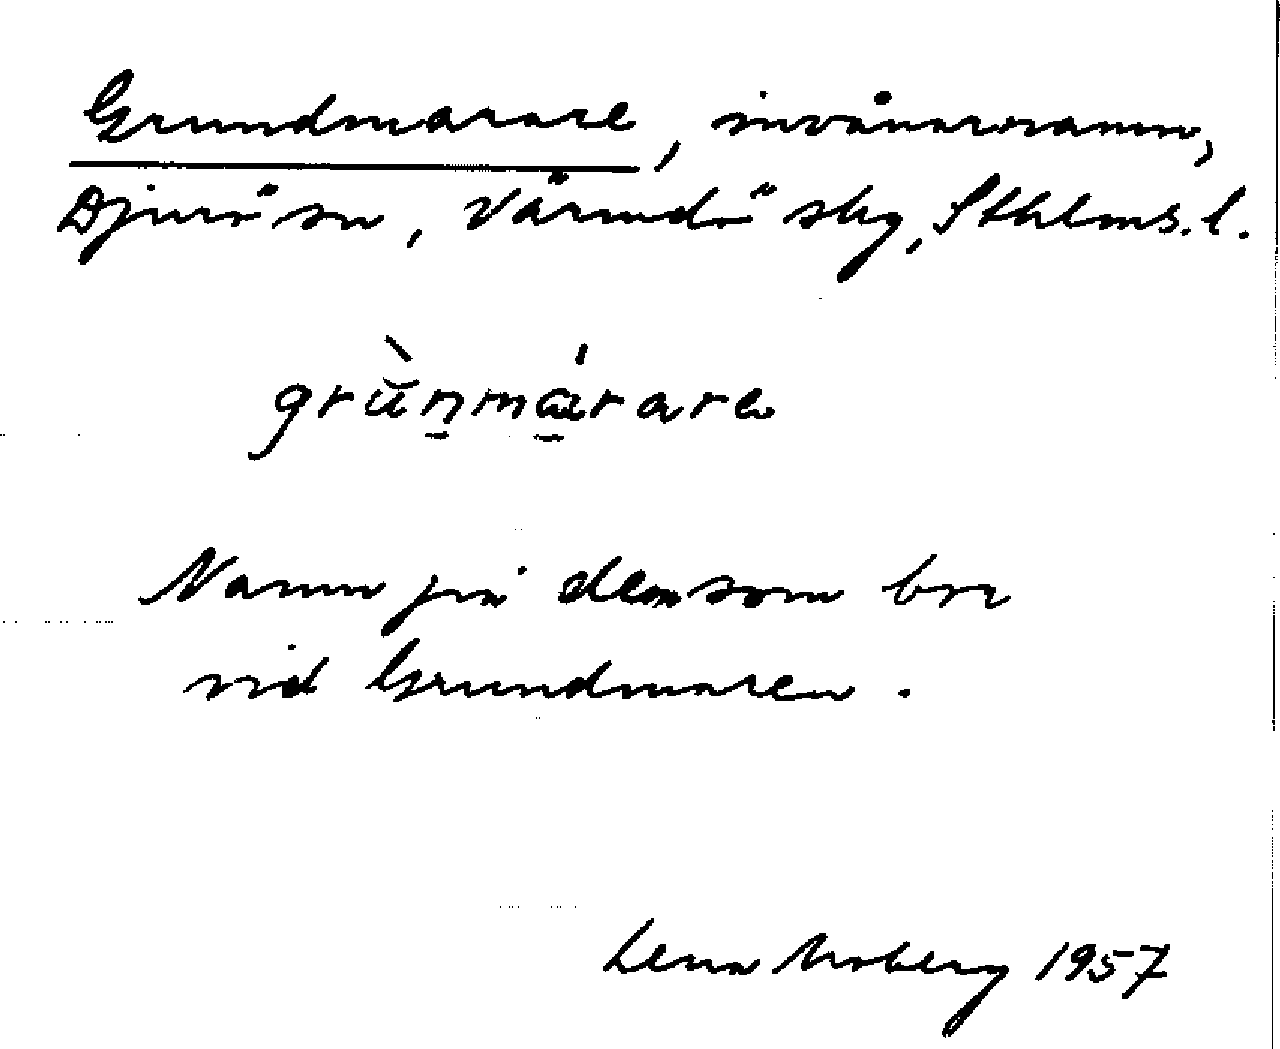 Grundmarare, invånarnamn,
Djurö sn, Värmdö skg, Sthlms. l.
grùn̠má̠rare
Namn på den som bor
vid Grundmaren.
Lena Moberg 1957